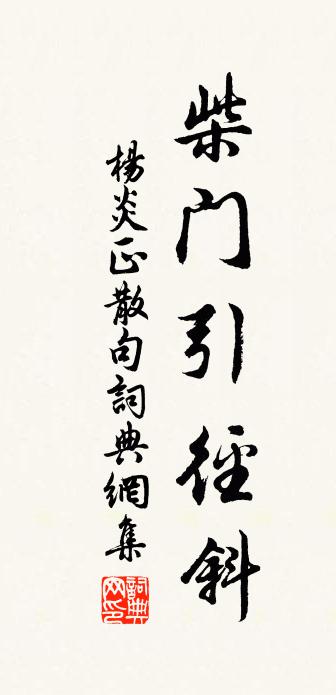 柴门引徑斜
楊炎正散句詞典網集
詞典網印